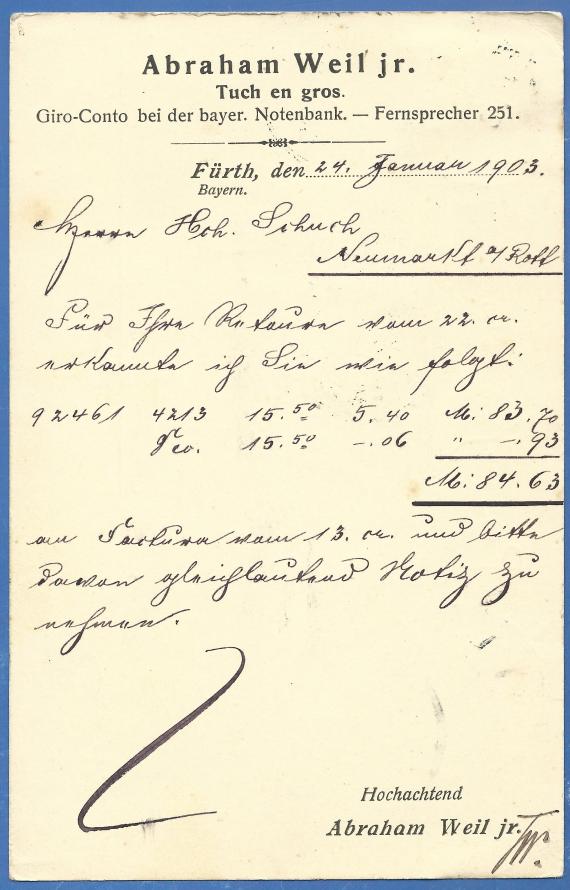 Abraham Weil jr.
Tuch en gros.
Giro-Conto bei der bayer. Notenbank. — Fernsprecher 251.
Fürth, den 24. Januar 1903.
Bayern.
Herrn Hch. Schuch
Neumarkt a/Rott
Für Ihre Retoure vom 22. cr.
erkannte ich Sie wie folgt:
92461 4213 15.50 5.40 M: 83.70
15.50 -.06 " -.93
M: 84.63
an Factura vom 13. cr. und bitte
davon gleichlautend Notiz zu
nehmen.
Hochachtend
Abraham Weil jr.